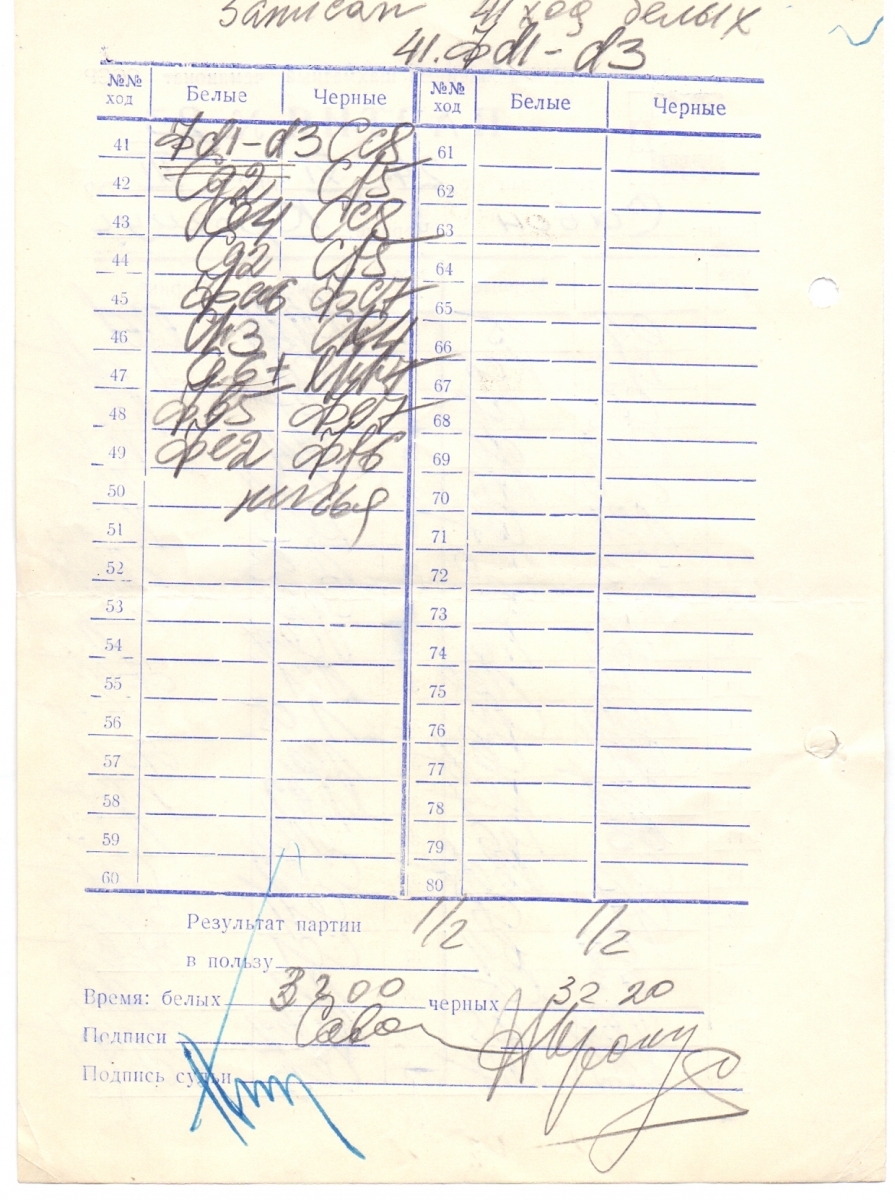 Записан 41 ход белых
41. Фd1-d3
№№ ход Белые Черные №№ ход Белые Черные
41 Фd1-d3 Сc8 61
42 Сg2 Сf5 62
43 Сc8 63
44 Сg2 Сf5 64
45 Фa6 Фc7 65
46 Сh3 66
47 67
48 Фb5 Фe7 68
49 Фe2 Фf6 69
50 ничья 70
51 71
52 72
53 73
54 74
55 75
56 76
57 77
58 78
59 79
60 80
Результат партии 1/2 1/2
в пользу
Время: белых 3 г 00 черных 3 г 20
Подписи
Подпись судьи